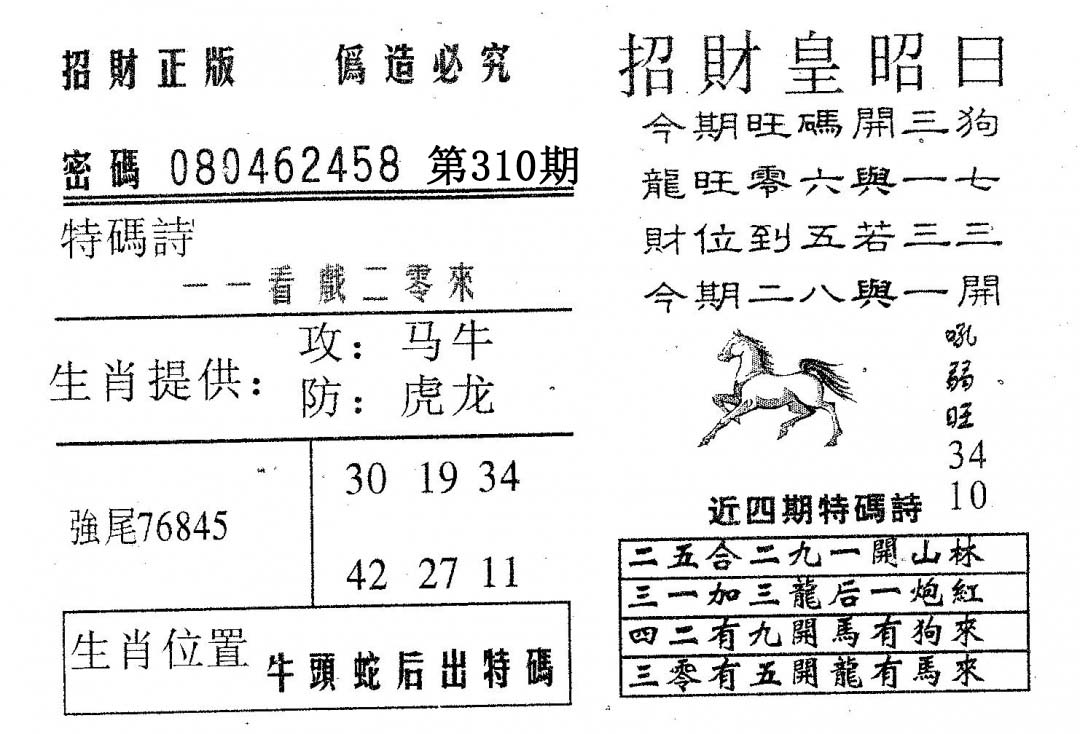 招財正版 僞造必究
密碼 080462458 第310期
特碼詩
一一看戲二零來
生肖提供：
攻：马牛
防：虎龙
強尾76845
30 19 34
42 27 11
生肖位置
牛頭蛇后出特碼
招財皇昭曰
今期旺碼開三狗
龍旺零六與一七
財位到五若三三
今期二八與一開
吼
弱
旺
34
10
近四期特碼詩
二五合二九一開山林
三一加三龍后一炮紅
四二有九開馬有狗來
三零有五開龍有馬來